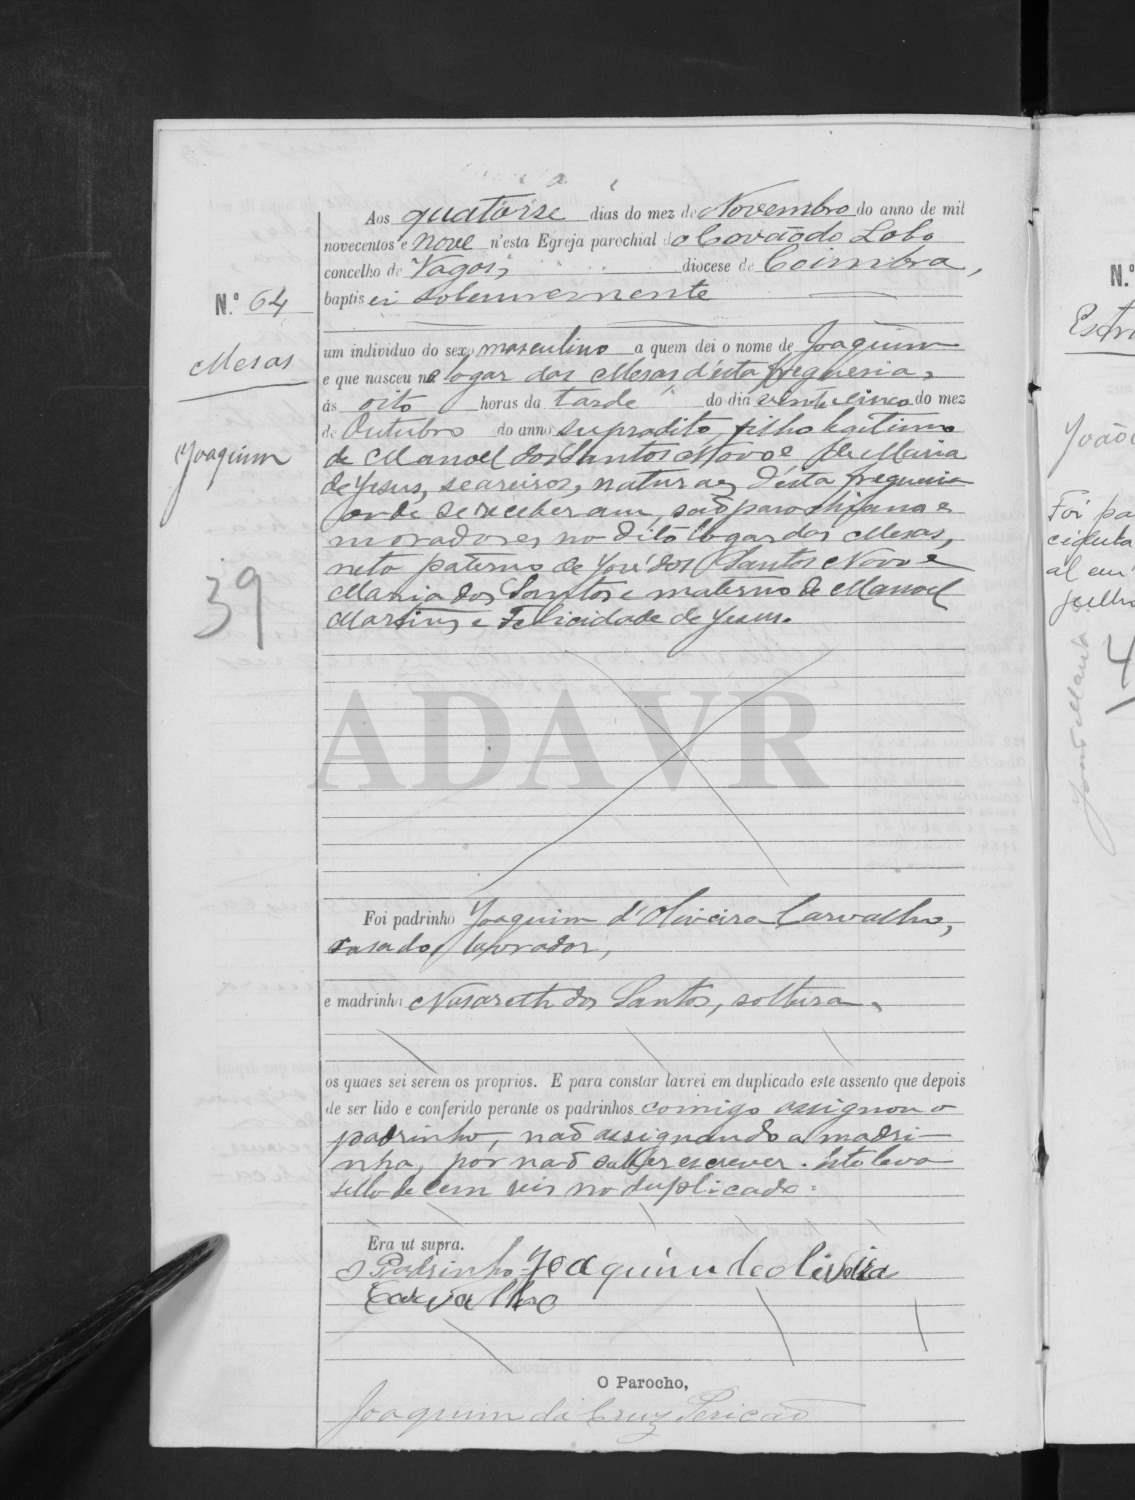 Aos quatorse dias do mez de Novembro do anno de mil
novecentos e nove n'esta Egreja parochial do Covão do Lobo
concelho de Vagos, diocese de Coimbra,
N.º 64
baptisei solemnemente
Mesas
um individuo do sexo masculino a quem dei o nome de Joaquim
e que nasceu no logar das Mesas d'esta freguesia,
ás oito horas da tarde do dia vinte cinco do mez
Joaquim
de Outubro do anno supradito, filho legitimo
de Manoel dos Santos Novo e de Maria
de Jesus, seareiros, naturaes d'esta freguesia
onde se receberam, são parochianos e
moradores no dito logar das Mesas,
neto paterno de José dos Santos Novo e
39
Maria dos Santos e materno de Manoel
Martins e Felicidade de Jesus.
ADAVR
Foi padrinho Joaquim d'Oliveira Carvalho,
casado, lavrador,
e madrinha Nasareth dos Santos, solteira,
os quaes sei serem os proprios. E para constar lavrei em duplicado este assento que depois
de ser lido e conferido perante os padrinhos comigo assignou o
padrinho, não assignando a madri-
nha, por não saber escrever. Este leva
sello de cem reis no duplicado.
Era ut supra.
O Padrinho Joaquim de Oliveira
Carvalho
O Parocho,
Joaquim da Cruz Pericão
N.º
João
Foi pa
al em
julho